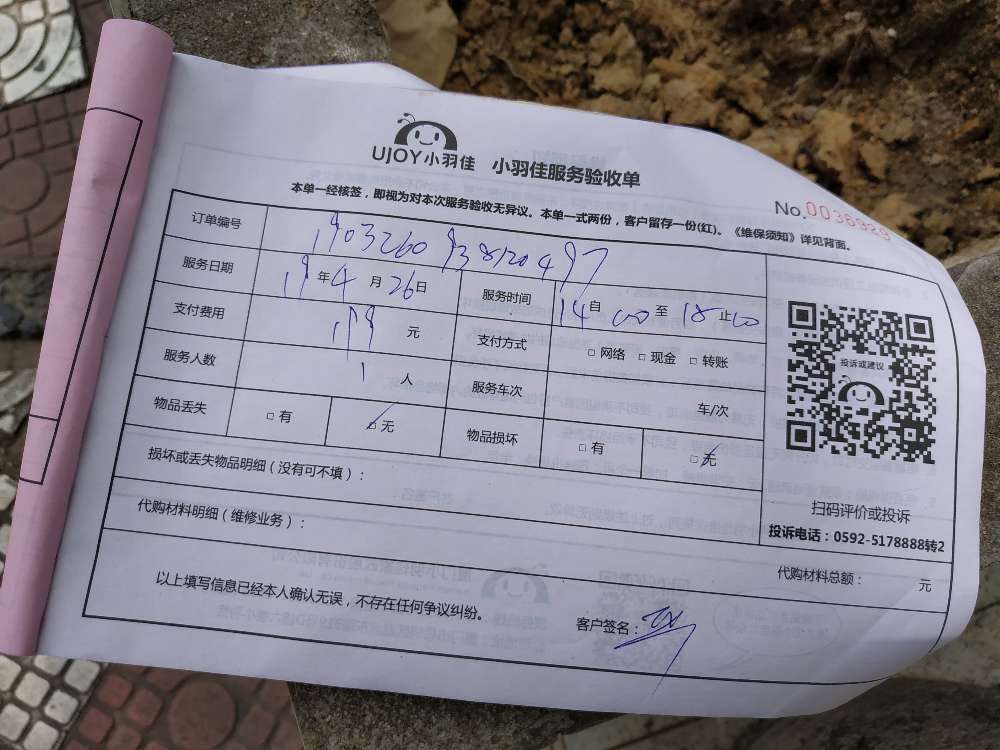 UJOY小羽佳 小羽佳服务验收单
No.0036929
本单一经核签，即视为对本次服务验收无异议。本单一式两份，客户留存一份(红)。《维保须知》详见背面。
订单编号
服务日期 19年4月26日 服务时间 14自00至18止00
支付费用 199元 支付方式 □网络 □现金 □转账
服务人数 1人 服务车次 车/次
物品丢失 □有 ☑无 物品损坏 □有 ☑无
损坏或丢失物品明细（没有可不填）：
代购材料明细（维修业务）：
投诉或建议
扫码评价或投诉
投诉电话：0592-5178888转2
代购材料总额： 元
以上填写信息已经本人确认无误，不存在任何争议纠纷。
客户签名：